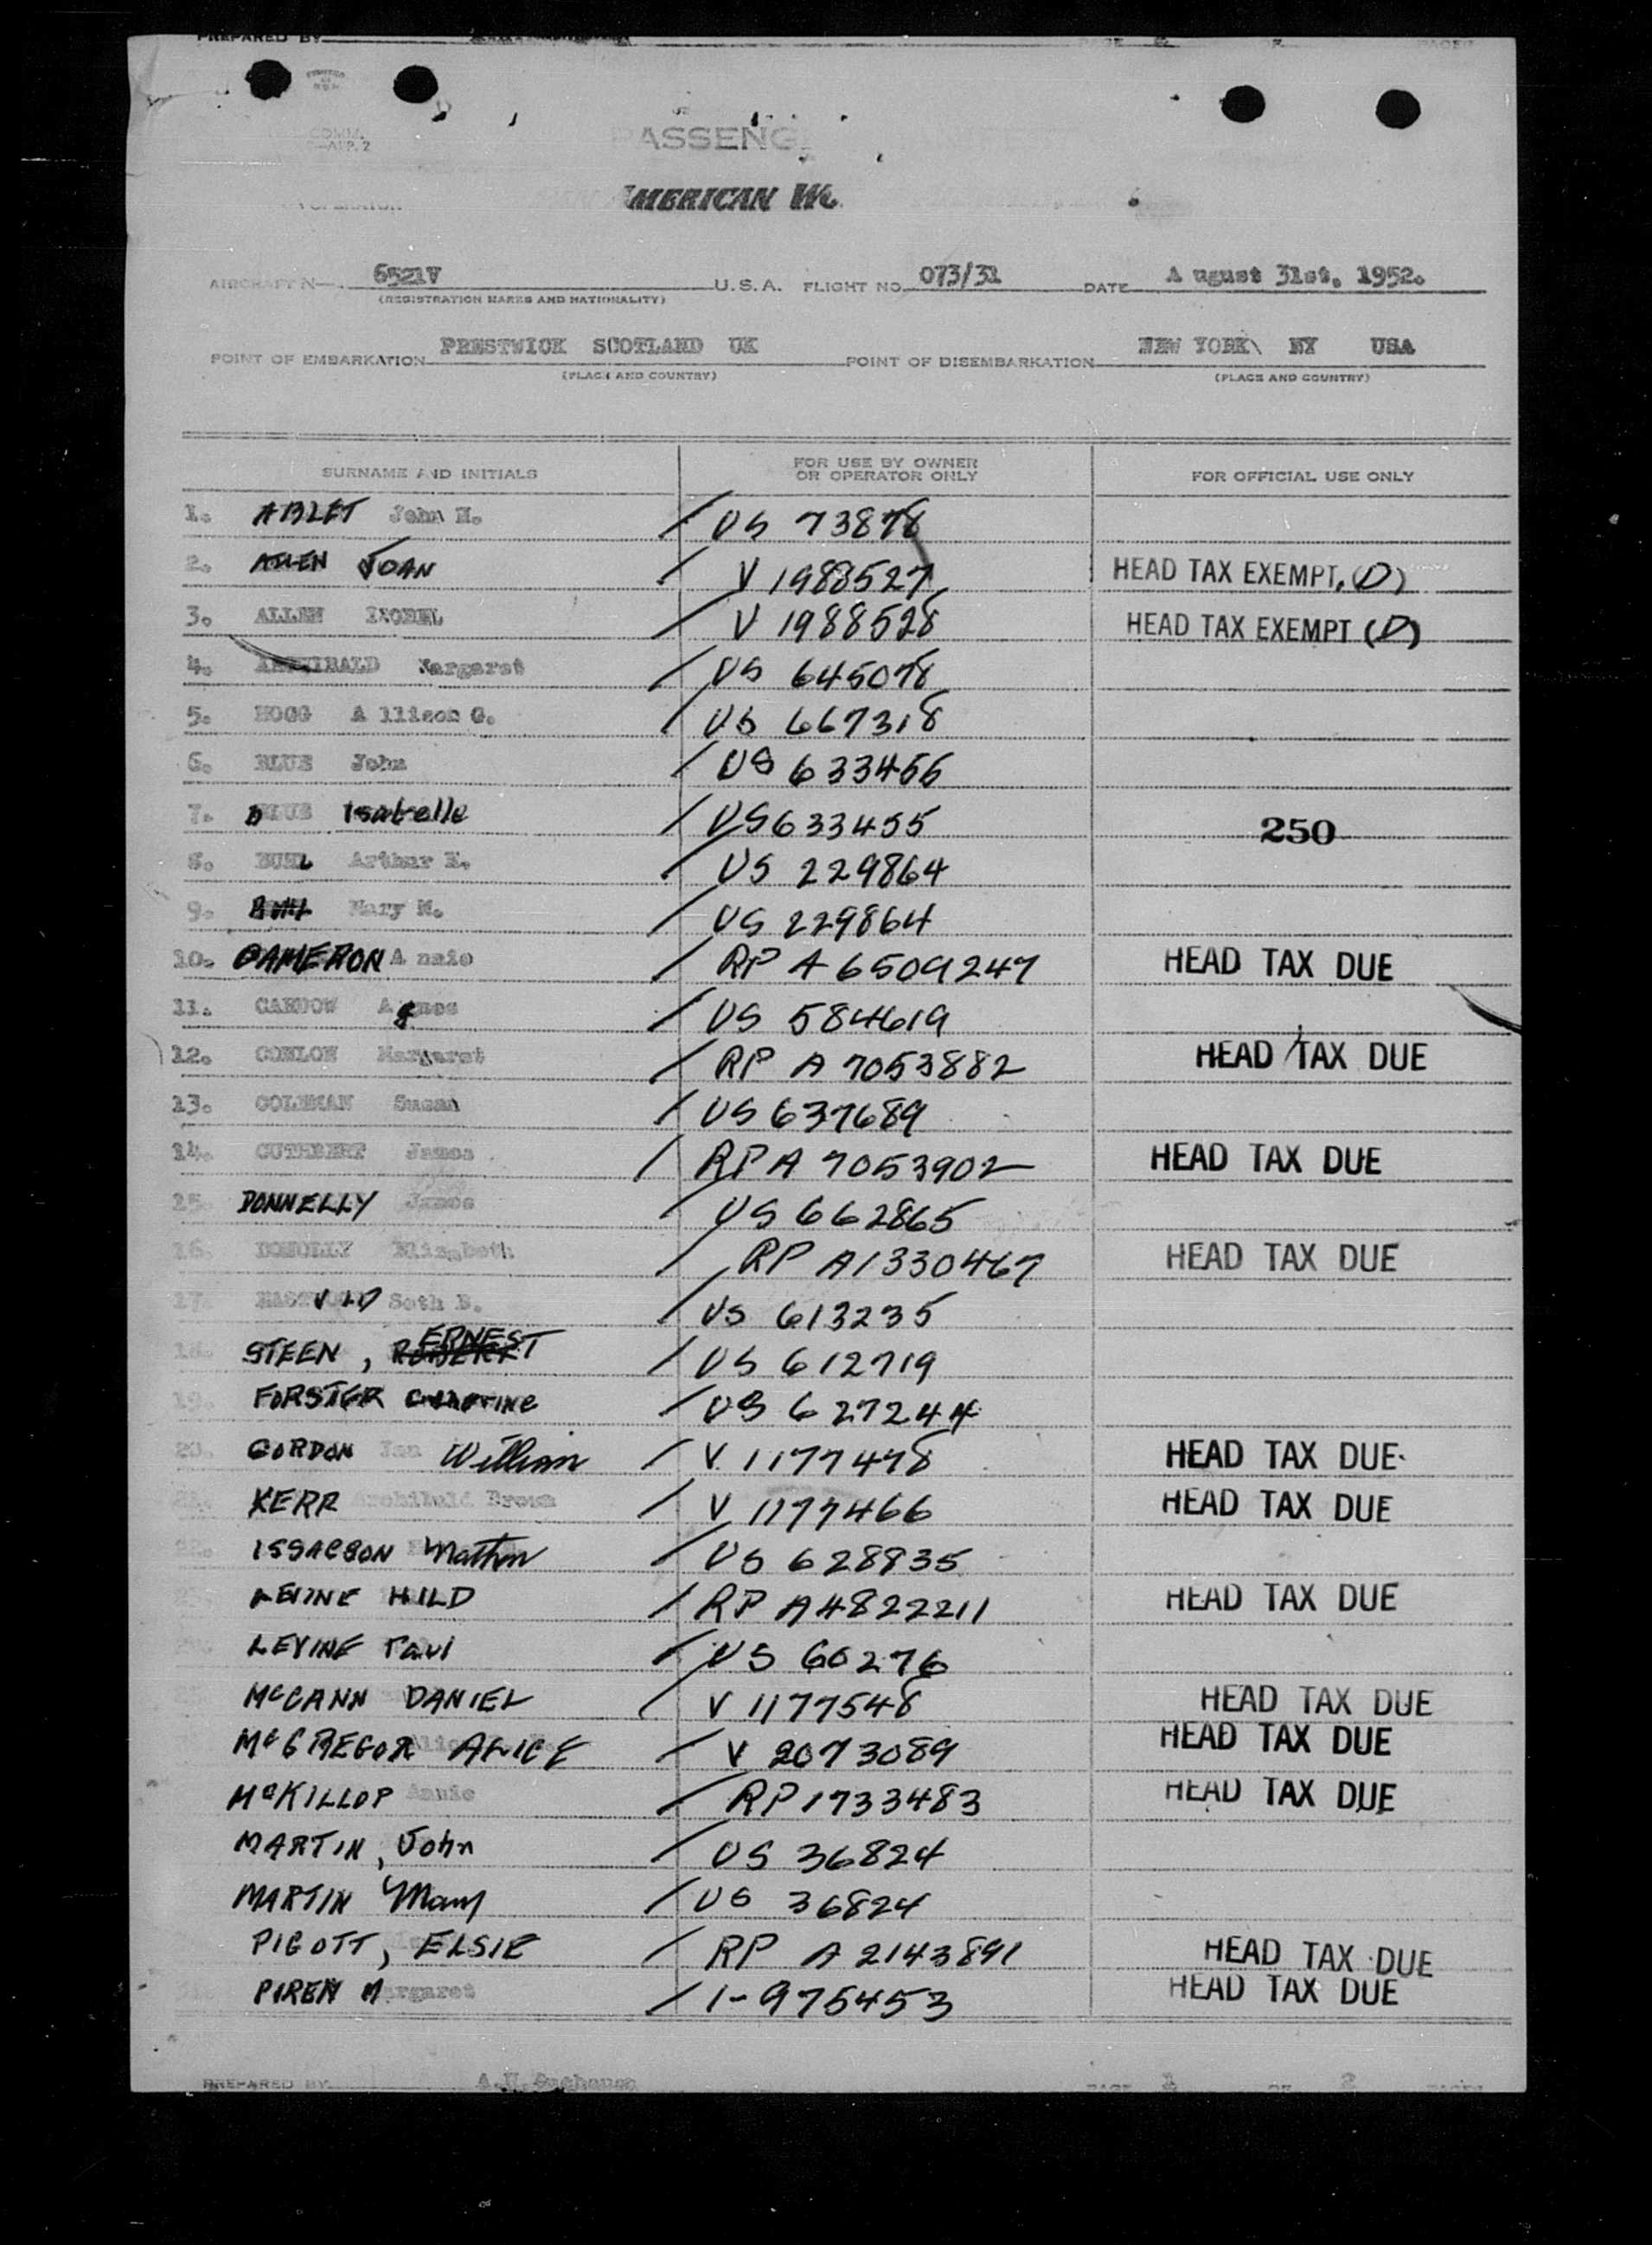 PREPARED BY
PASSENG
AMERICAN WO
AIRCRAFT N 6521V U.S.A. FLIGHT NO. 073/31 DATE A ugust 31st, 1952.
(REGISTRATION MARKS AND NATIONALITY)
POINT OF EMBARKATION PRESTWICK SCOTLAND UK POINT OF DISEMBARKATION NEW YORK NY USA
(PLACE AND COUNTRY) (PLACE AND COUNTRY)
SURNAME AND INITIALS FOR USE BY OWNER OR OPERATOR ONLY FOR OFFICIAL USE ONLY
1. ABLET John H. / US 73878
2. ALLEN JOAN / V 1988527 HEAD TAX EXEMPT. (D)
3. ALLEN ISOBEL / V 1988528 HEAD TAX EXEMPT (D)
4. ARCHIBALD Margaret / US 645078
5. HOGG A llison G. / US 667318
6. BLUE John / US 633456
7. BLUE Isabelle / US 633455 250
8. BUHL Arthur E. / US 229864
9. BUHL Mary M. / US 229864
10. CAMERON A nnie / RP A 6509247 HEAD TAX DUE
11. CARDOW Agnes / US 584619
12. CONLON Margaret / RP A 7053882 HEAD TAX DUE
13. COLEMAN Susan / US 637689
14. CUTHBERT James / RP A 7053902 HEAD TAX DUE
15. DONNELLY James / US 662865
16. DONOLLY Elizabeth / RP A1330467 HEAD TAX DUE
17. Seth B. / US 613235
18. STEEN, ERNEST / US 612719
19. FORSTER Catherine / US 627244
20. GORDON Ian William / V 1177478 HEAD TAX DUE
21. KERR Archibald Brown / V 1177466 HEAD TAX DUE
22. ISSACSON Nathan / US 628835
LEVINE HILD / RP A4822211 HEAD TAX DUE
LEVINE Paul / US 60276
McCANN DANIEL / V 1177548 HEAD TAX DUE
McGREGOR ALICE / V 2073089 HEAD TAX DUE
McKILLOP Annie / RP 1733483 HEAD TAX DUE
MARTIN, John / US 36824
MARTIN Mary / US 36824
PIGOTT, ELSIE / RP A 2143891 HEAD TAX DUE
PIREN Margaret / I-975453 HEAD TAX DUE
PREPARED BY PAGE 1 OF 2 PAGES